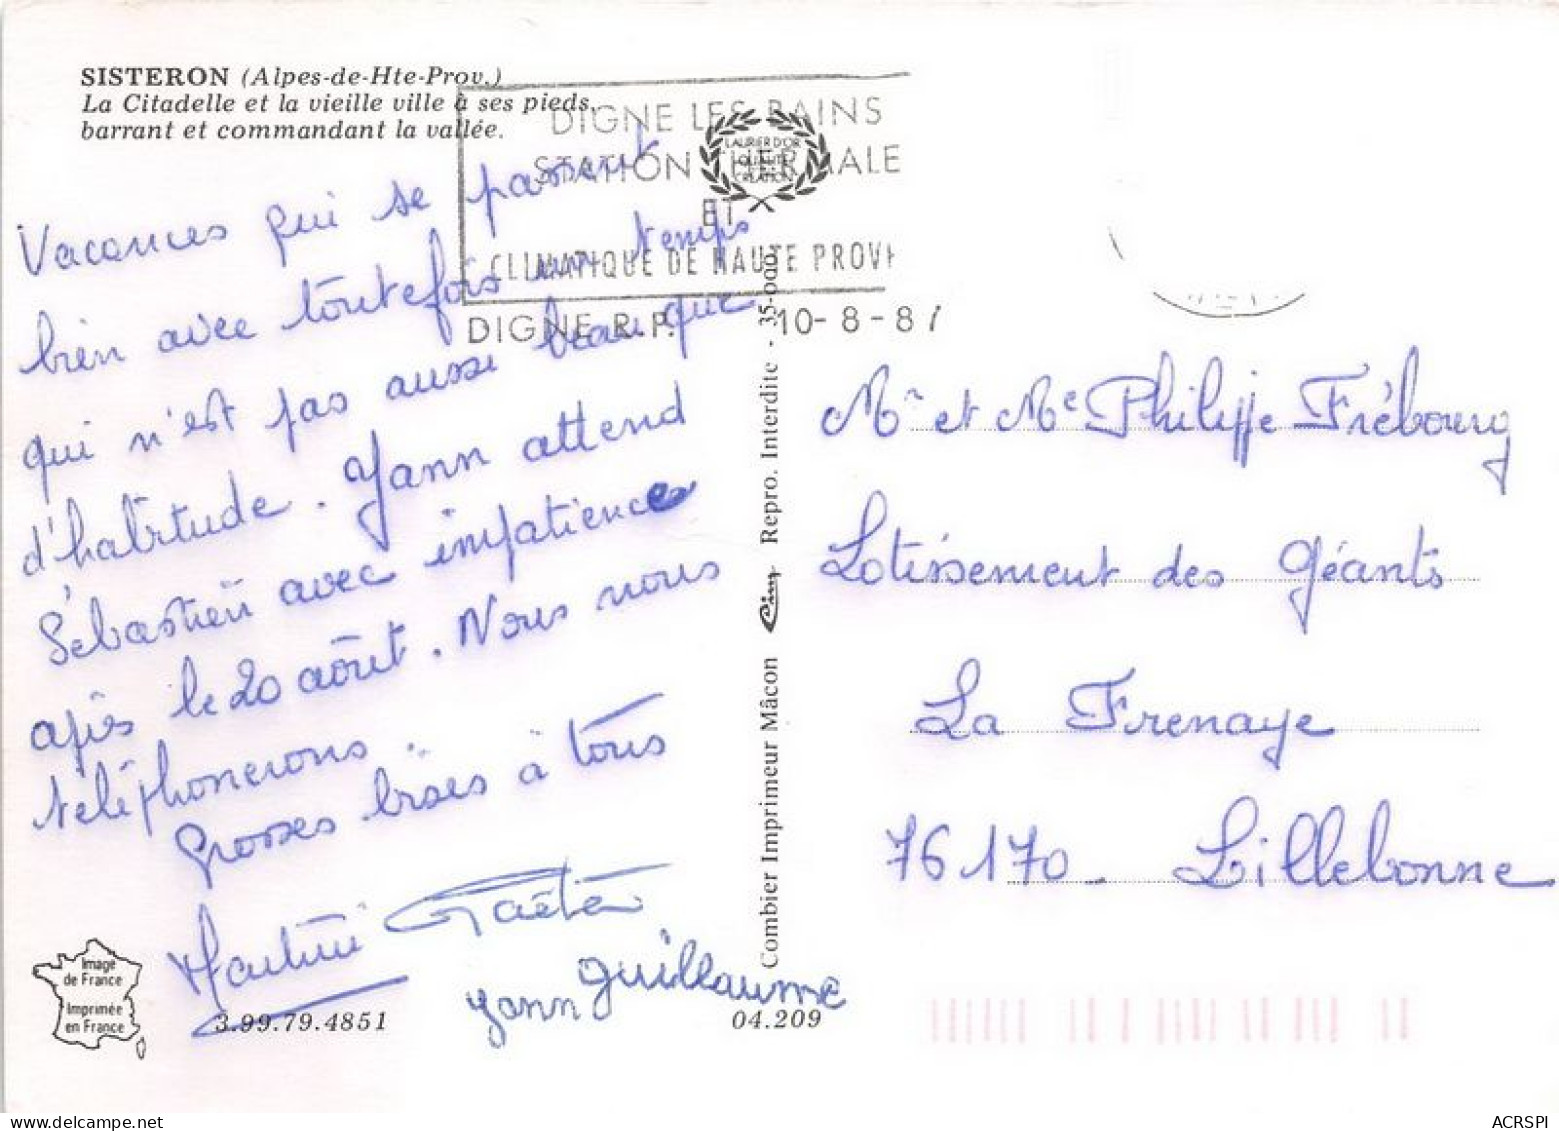 SISTERON (Alpes-de-Hte-Prov.)
La Citadelle et la vieille ville à ses pieds,
barrant et commandant la vallée.
DIGNE LES BAINS
STATION THERMALE
ET
CLIMATIQUE DE HAUTE PROV
DIGNE R.P. 10-8-87
LAURIER D'OR
QUALITÉ
CRÉATION
Vacances qui se passent
bien avec toutefois un temps
qui n'est pas aussi beau que
d'habitude. Yann attend
Sébastien avec impatience
après le 20 août. Nous nous
téléphonerons.
Grosses bises à tous
Martine Gaëtan
Yann Guillaume
Mr et Me Philippe Frébourg
Lotissement des Géants
La Frenaye
76170. Lillebonne
Combier Imprimeur Mâcon Cim Repro. Interdite - 35-000
Image
de France
Imprimée
en France
3.99.79.4851
04.209
ACRSPI